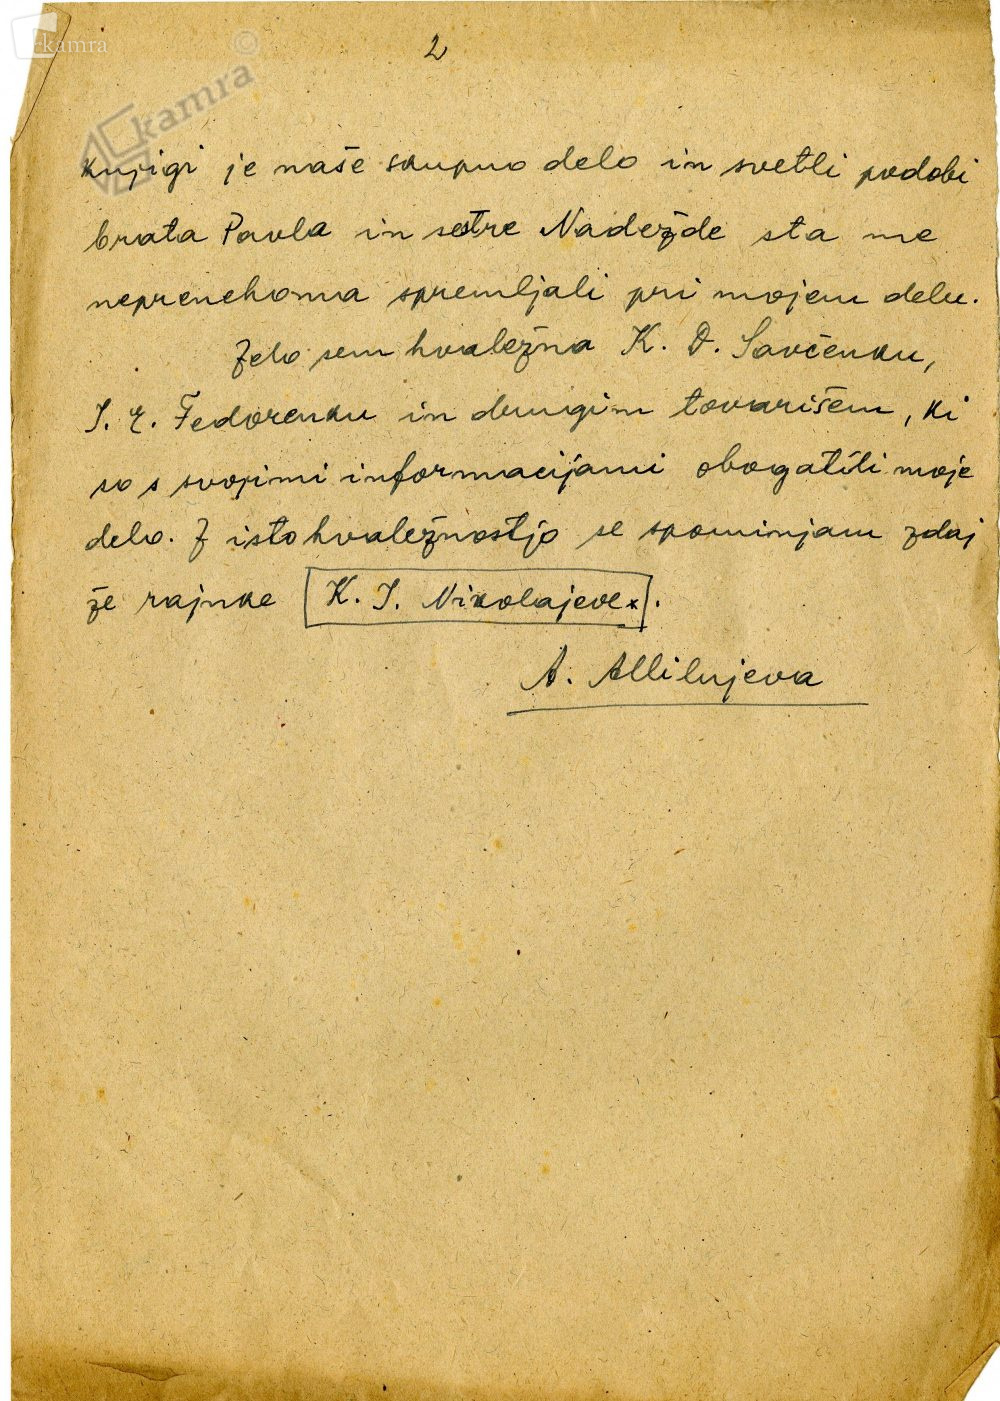 kamra
©
kamra
2
knjigi je naše skupno delo in svetli podobi
brata Pavla in sestre Nadežde sta me
neprenehoma spremljali pri mojem delu.
Zelo sem hvaležna K. D. Savčenku,
I. E. Fedorenku in drugim tovarišem, ki
so s svojimi informacijami obogatili moje
delo. Z isto hvaležnostjo se spominjam zdaj
že rajnke K. I. Nikolajeve.
A. Allilujeva